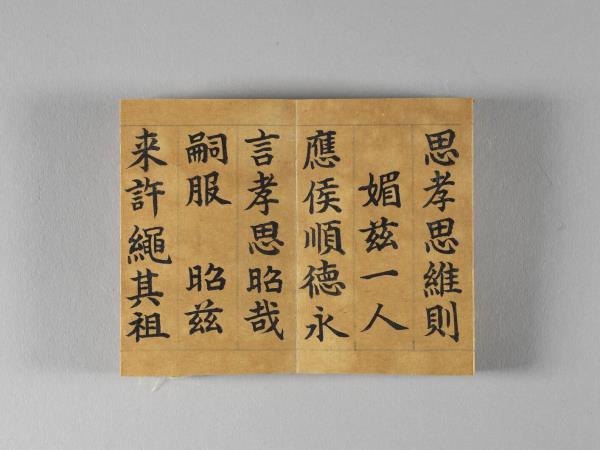 思孝思維則
媚茲一人
應侯順德永
言孝思昭哉
嗣服　昭茲
来許繩其祖